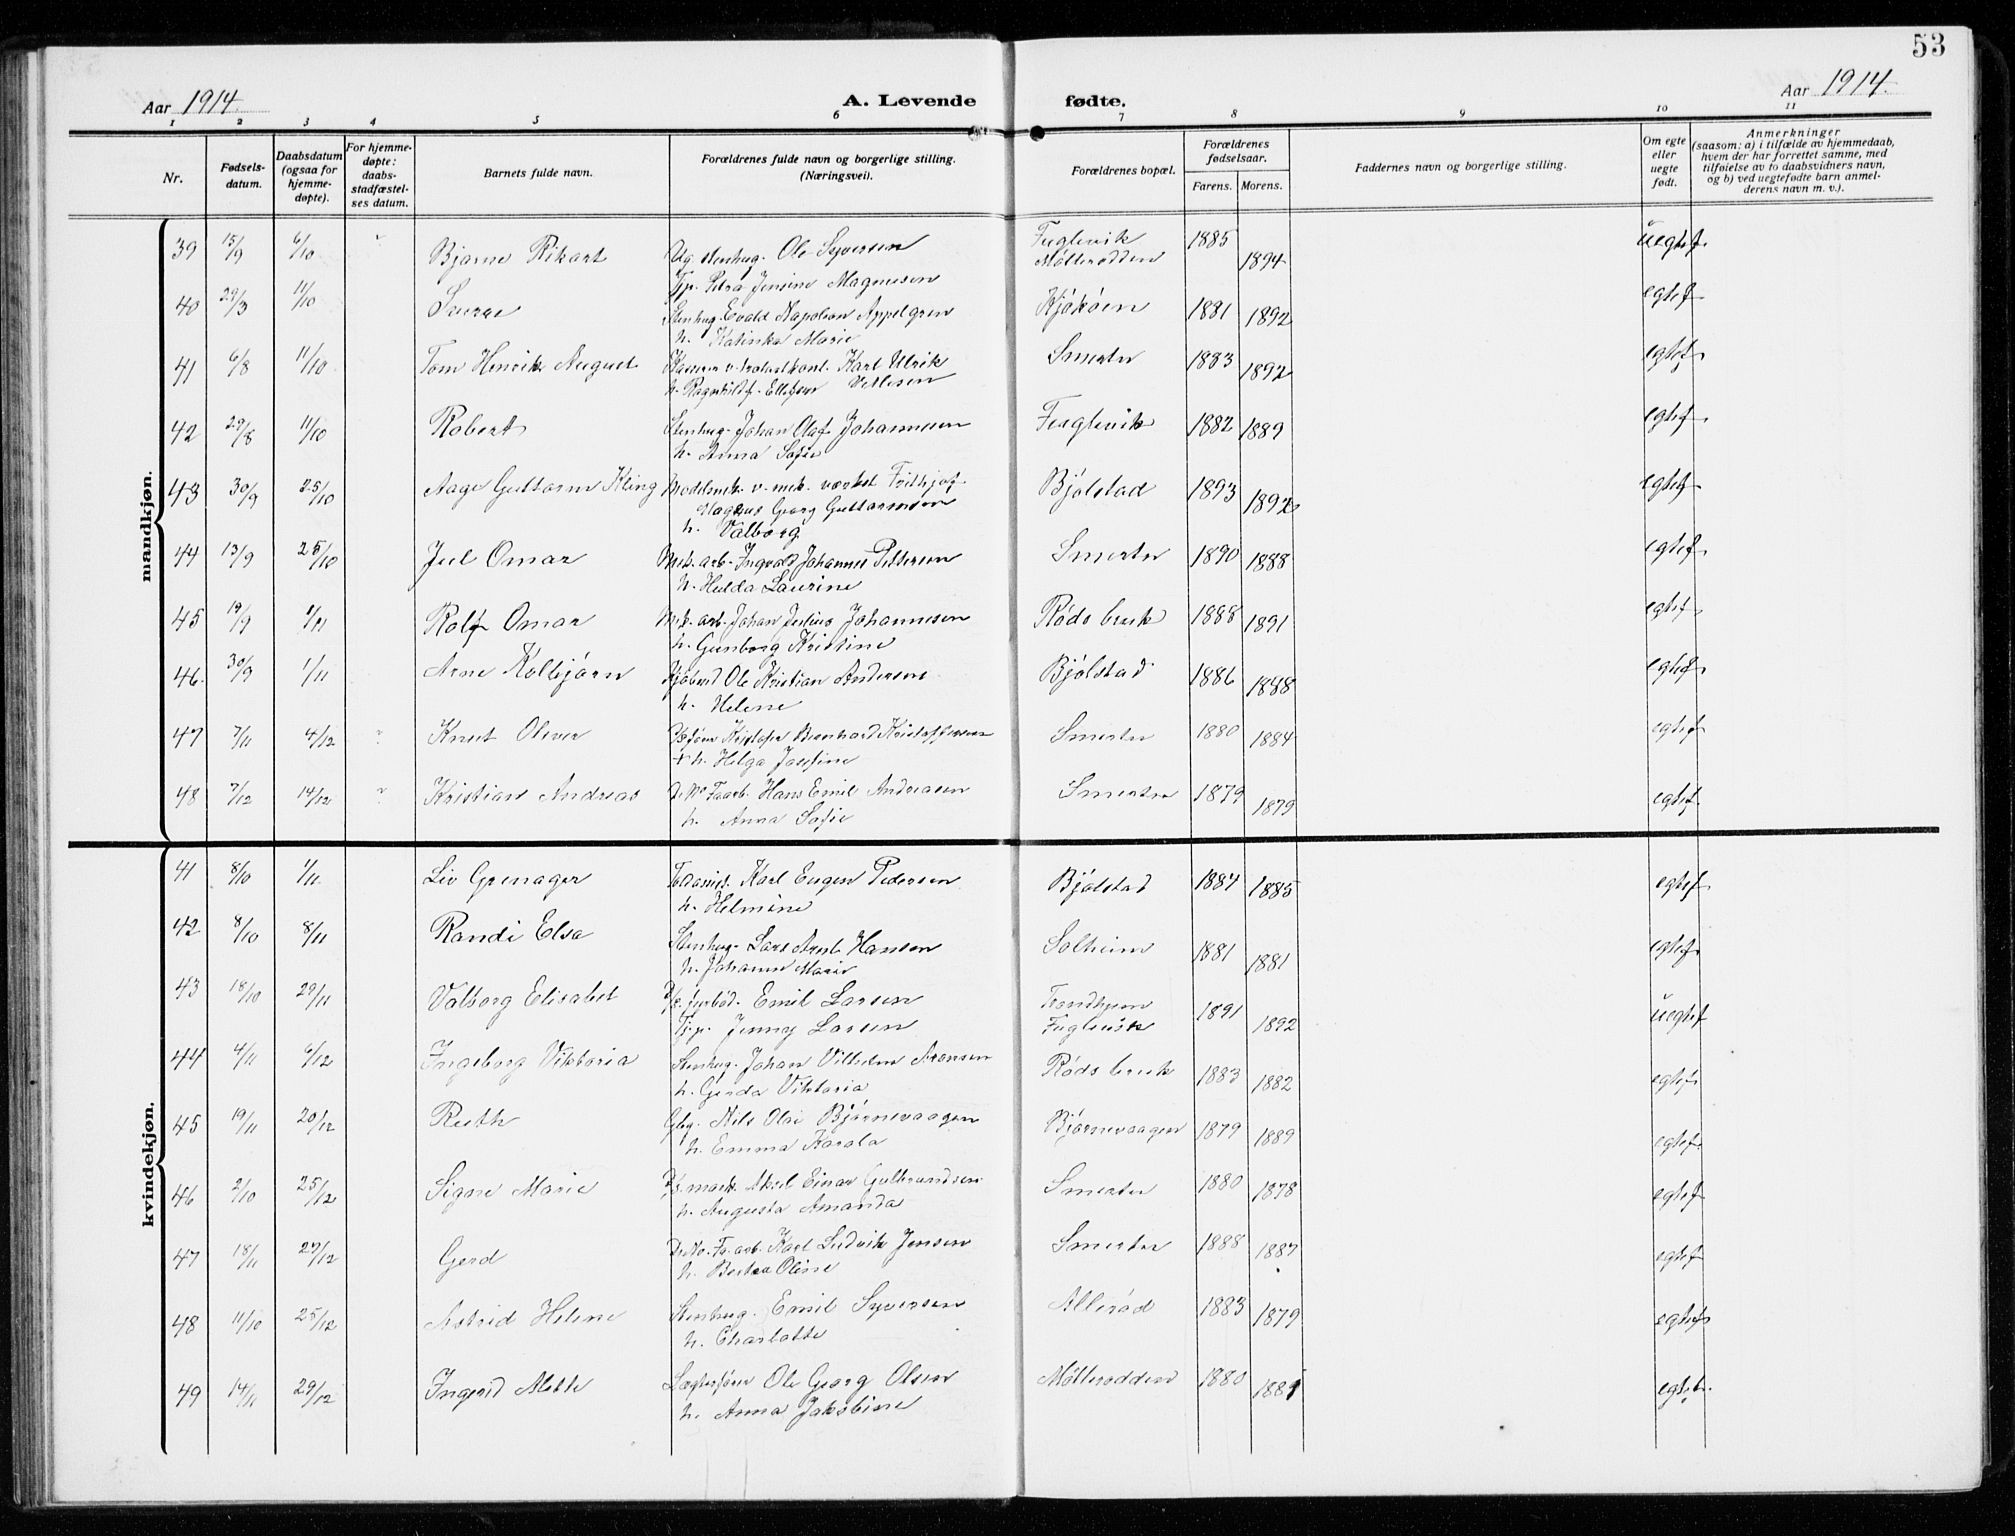 53
Aar 1914. A. Levende fødte. Aar 1914.
1 2 3 4 5 6 7 8 9 10 11
Nr. Fødsels-datum. Daabsdatum (ogsaa for hjemme-døpte). For hjemme-døpte: daabs-stadfæstel-ses datum. Barnets fulde navn. Forældrenes fulde navn og borgerlige stilling. (Næringsvei). Forældrenes bopæl. Forældrenes fødselsaar. Farens. Morens. Faddernes navn og borgerlige stilling. Om egte eller uegte født. Anmerkninger (saasom: a) i tilfælde av hjemmedaab, hvem der har forrettet samme, med tilføielse av to daabsvidners navn, og b) ved uegtefødte barn anmel-derens navn m. v.).
mandkjøn.
39 15/9 6/10 Bjarne Rikart Ug. stenhug. Ole Syversen Fuglevik 1885 uegtef.
Tjp. Petra Jensine Magnusen Mølleródden 1894
40 29/3 11/10 Stenhug. Evald Napoleon Appelgren Kjøkøen 1881 1892 egtef.
h. Katinka Marie
41 6/8 11/10 Tom Henrik August Karl Ulrik Smerter 1883 1892 egtef.
h. Ragnhild f. Ellefsen
42 29/8 11/10 Robert Stenhug. Johan Olaf Johannesen Fuglevik 1882 1889 egtef.
h. Anna Sofie
43 30/9 25/10 Aage Guttorm Kling Modelsnek. v. mek. værkst Frithjof Bjølstad 1893 1892 egtef.
Magnus Georg Guttormsen
h. Valborg
44 13/9 25/10 Juel Omar Mek. arb. Ingvald Johannes Pettersen Smerter 1890 1888 egtef.
h. Hulda Laurine
45 19/9 1/11 Rolf Omar Mek. arb. Johan Julius Johannesen Røds bruk 1888 1891 egtef.
h. Gunborg Kristine
46. 30/9 1/11 Arne Kolbjørn Ole Kristian Andersen Bjølstad 1886 1888 egtef.
h. Helene
47 7/11 4/12 Knut Oliver Kristofer Bernhard Kristoffersen Smerter 1880 1884 egtef.
h. Helga Josefine
48 7/12 14/12 Kristian Andreas Hans Emil Andreasen Smerter 1879 1879 egtef.
h. Anna Sofie
kvindekjøn.
41 8/10 1/11 Liv Grenager Karl Eugen Pedersen Bjølstad 1884 1885 egtef.
h. Helmine
42 8/10 8/11 Randi Elsa Stenhug. Lars Hansen Solheim 1881 1881 egtef.
h. Johanne Marie
43 18/10 29/11 Valborg Elisabet Emil Larsen Trondhjem 1891 uegtef
Tjp. Jenny Larsen Fuglevik 1892
44 4/11 6/12 Ingeborg Viktoria Stenhug. Johan Vilhelm Aronsen Røds bruk 1883 1882 egtef.
h. Gerda Viktoria
45 19/11 20/12 Ruth Nils Olai Bjørnevaagen Bjørnevaagen 1879 1889 egtef.
h. Emma Karola
46 2/10 25/12 Signe Marie Aksel Einar Gulbrandsen Smerter 1880 1878 egtef
h. Augusta Amanda
47 18/11 27/12 Gerd Karl Ludvik Jensen Smerter 1888 1887 egtef
h. Oline
48 11/10 25/12 Astrid Helene Stenhug. Emil Syversen Allerød 1883 1879 egtef.
h. Charlotte
49 14/11 29/12 Ingerid Mette Ole Georg Olsen Mølleródden 1880 egtef.
h. Anna Jakobine